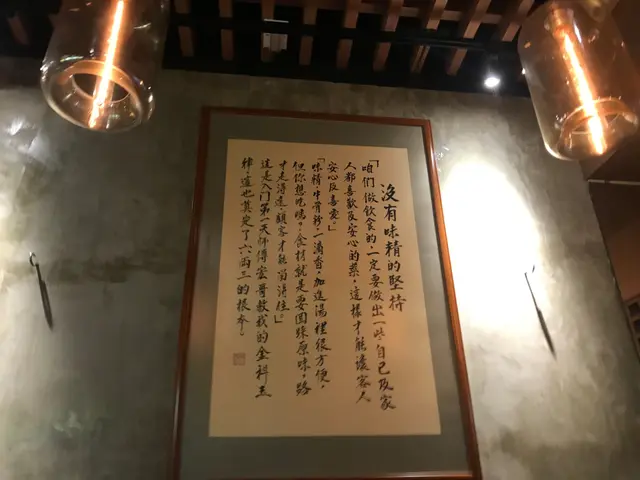 沒有味精的堅持
「咱们做飲食的,一定要做出一些自己及家
人都喜歡及安心的菜,這樣才能讓客人
安心及喜愛。」
「味精、牛骨粉,一滴香,加進湯裡很方便,
但你想吃嗎。食材就是要回歸原味,路
才走得遠,顧客才能留得住。」
這是入门第一天師傅宏哥教我的金科玉
律,這也奠定了六兩三的根本。